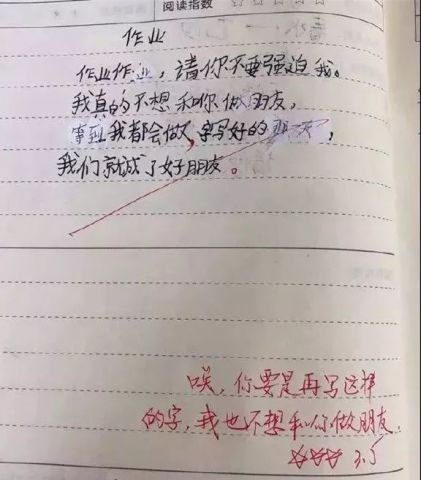 阅读指数 ☆☆☆☆☆
作业
作业作业，请你不要强迫我。
我真的不想和你做朋友，
等到我都会做，字写好的那天，
我们就成了好朋友。
唉，你要是再写这样
的字，我也不想和你做朋友。
☆☆☆ 3.5